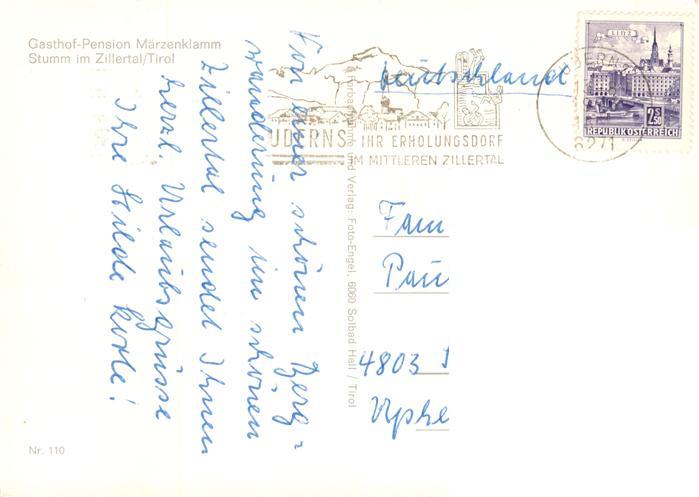 Gasthof-Pension Märzenklamm
Stumm im Zillertal/Tirol
Von einer schönen Berg-
wanderung im schönen
Zillertal sendet Ihnen
herzl. Urlaubsgrüsse
Ihre Hilde
Nr. 110
und Verlag: Foto-Engel, 6060 Solbad Hall / Tirol
UDERNS - IHR ERHOLUNGSDORF
IM MITTLEREN ZILLERTAL
6271
LINZ
2.50
REPUBLIK ÖSTERREICH
Deutschland
Fam
Pau
4803